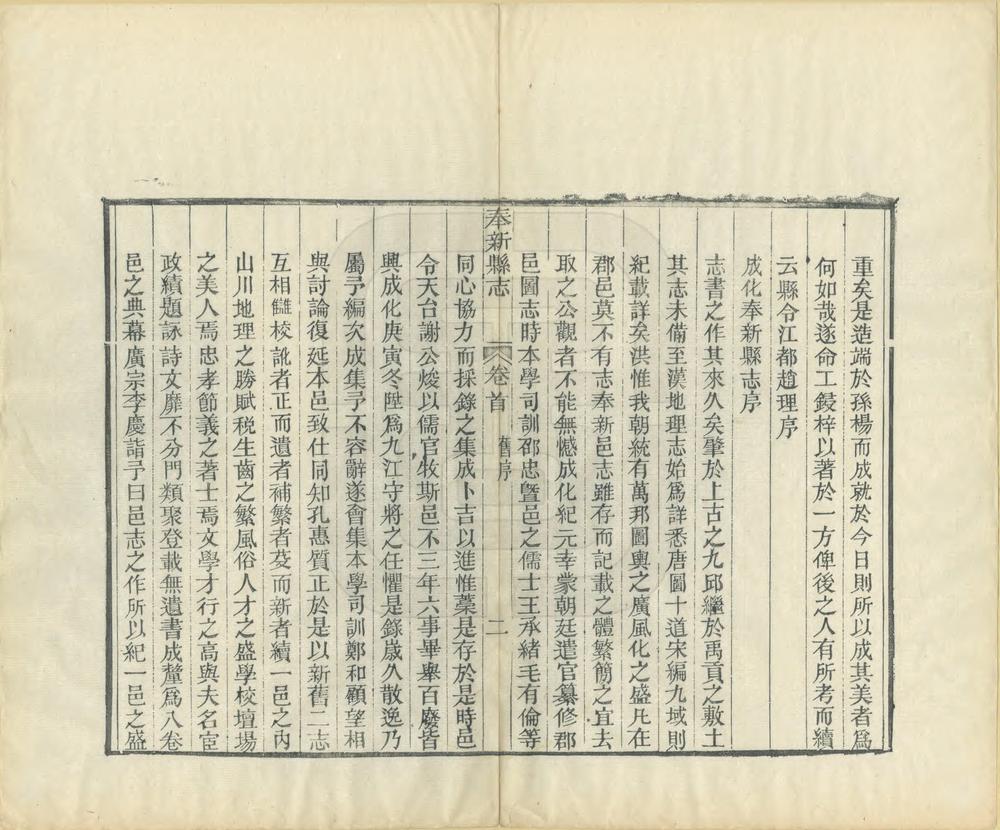 重矣是造端於孫楊而成就於今日則所以成其美者爲
何如哉遂命工鋟梓以著於一方俾後之人有所考而續
云縣令江都趙理序
成化奉新縣志序
志書之作其來久矣肇於上古之九邱繼於禹貢之敷土
其志未備至漢地理志始爲詳悉唐圖十道宋編九域則
紀載詳矣洪惟我朝統有萬邦圖輿之廣風化之盛凡在
郡邑莫不有志奉新邑志雖存而記載之體繁簡之宜去
取之公觀者不能無憾成化紀元幸蒙朝廷遣官纂修郡
邑圖志時本學司訓邵忠曁邑之儒士王承緒毛有倫等
奉新縣志 卷首 舊序 二
同心協力而採錄之集成卜吉以進惟藁是存於是時邑
令天台謝公焌以儒官牧斯邑不三年六事畢舉百廢皆
興成化庚寅冬陞爲九江守將之任懼是錄歲久散逸乃
屬予編次成集予不容辭遂會集本學司訓鄭和顧望相
與討論復延本邑致仕同知孔惠質正於是以新舊二志
互相讎校訛者正而遺者補繁者芟而新者續一邑之內
山川地理之勝賦税生齒之繁風俗人才之盛學校壇場
之美人焉忠孝節義之著士焉文學才行之高與夫名宦
政績題詠詩文靡不分門類聚登載無遺書成釐爲八卷
邑之典幕廣宗李慶詣予曰邑志之作所以紀一邑之盛